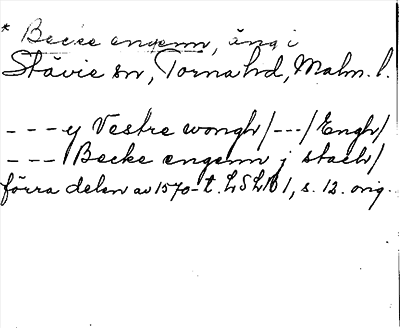 * Becke engenn, äng i
Stävie sn, Torna hd, Malm. l.
- - - y Vestre wongh/---/Engh/
- - - /Becke engenn j staeh/
förra delen av 1570-t. LSLB 1, s. 12. orig.